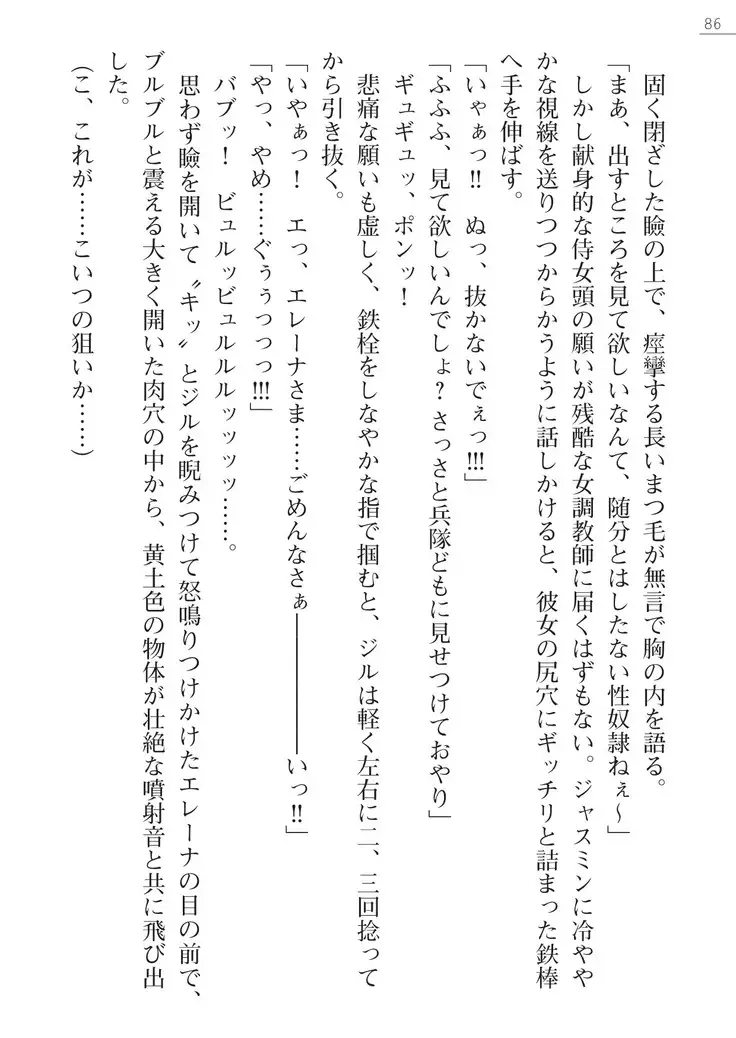 86
固く閉ざした瞼の上で、痙攣する長いまつ毛が無言で胸の内を語る。
「まあ、出すところを見て欲しいなんて、随分とはしたない性奴隷ねぇ〜」
しかし献身的な侍女頭の願いが残酷な女調教師に届くはずもない。ジャスミンに冷やや
かな視線を送りつつからかうように話しかけると、彼女の尻穴にギッチリと詰まった鉄棒
へ手を伸ばす。
「いゃぁっ!! ぬっ、抜かないでぇっ!!!」
「ふふふ、見て欲しいんでしょ? さっさと兵隊どもに見せつけておやり」
ギュギュッ、ポンッ!
悲痛な願いも虚しく、鉄栓をしなやかな指で掴むと、ジルは軽く左右に二、三回捻って
から引き抜く。
「いやぁっ! エっ、エレーナさま……ごめんなさぁ――――――いっ!!」
「やっ、やめ……ぐぅぅっっっ!!!」
バブッ! ビュルッビュルルルッッッッ……。
思わず瞼を開いて〝キッ〟とジルを睨みつけて怒鳴りつけかけたエレーナの目の前で、
ブルブルと震える大きく開いた肉穴の中から、黄土色の物体が壮絶な噴射音と共に飛び出
した。
(こ、これが……こいつの狙いか……)